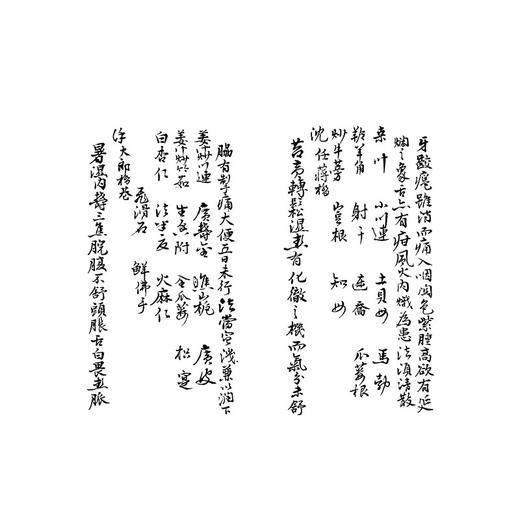 牙齦癰雖消而痛入咽關色紫腫高欲有延
爛之象舌上有疳風火內熾為患法須清散
桑叶 小川連 土貝母 馬勃
羚羊角 射干 連喬 瓜蔞根
炒牛蒡 豆根 知母
沈 任蔣橋
苔黃轉鬆濕熱有化徹之機而氣分未舒
腸有掣痛大便五日未行法當宣淺兼以潤下
姜汁炒川連 廣鬱金 黑山梔 廣皮
姜汁炒竹茹 生香附 全瓜蔞 枳實
白杏仁 法半夏 火麻仁
飛滑石 鮮佛手
徐 大郎橋巷
暑濕內鬱三焦脘腹不舒頭脹舌白畏熱脈